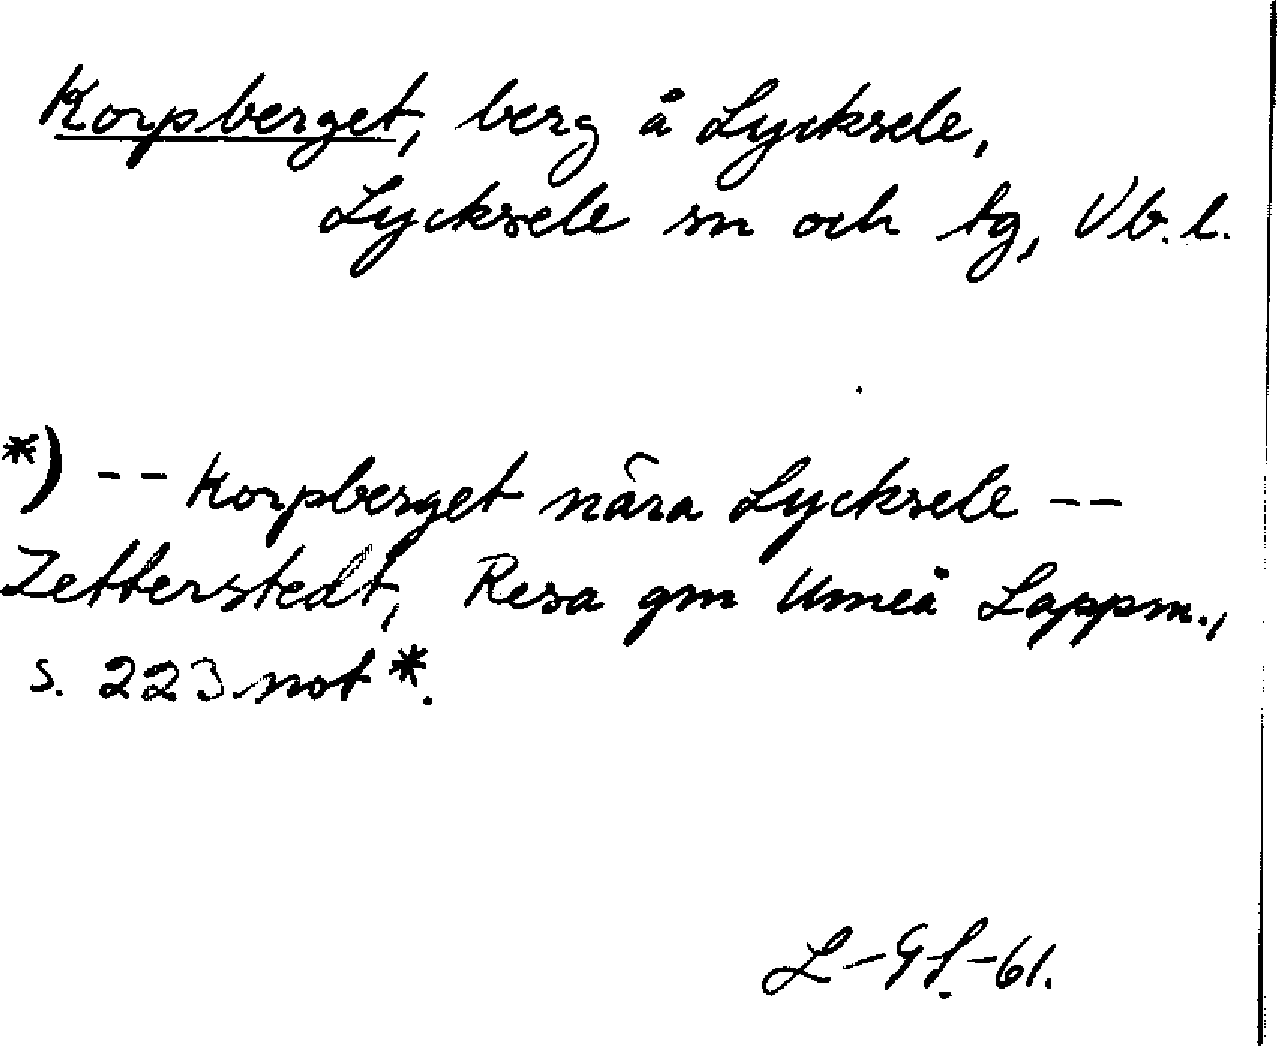 Korpberget, berg å Lycksele,
Lycksele sn och tg, Vb. l.
*) -- Korpberget nära Lycksele --
Zetterstedt, Resa gm Umeå Lappm.,
s. 223 not *.
L-Gf.-61.